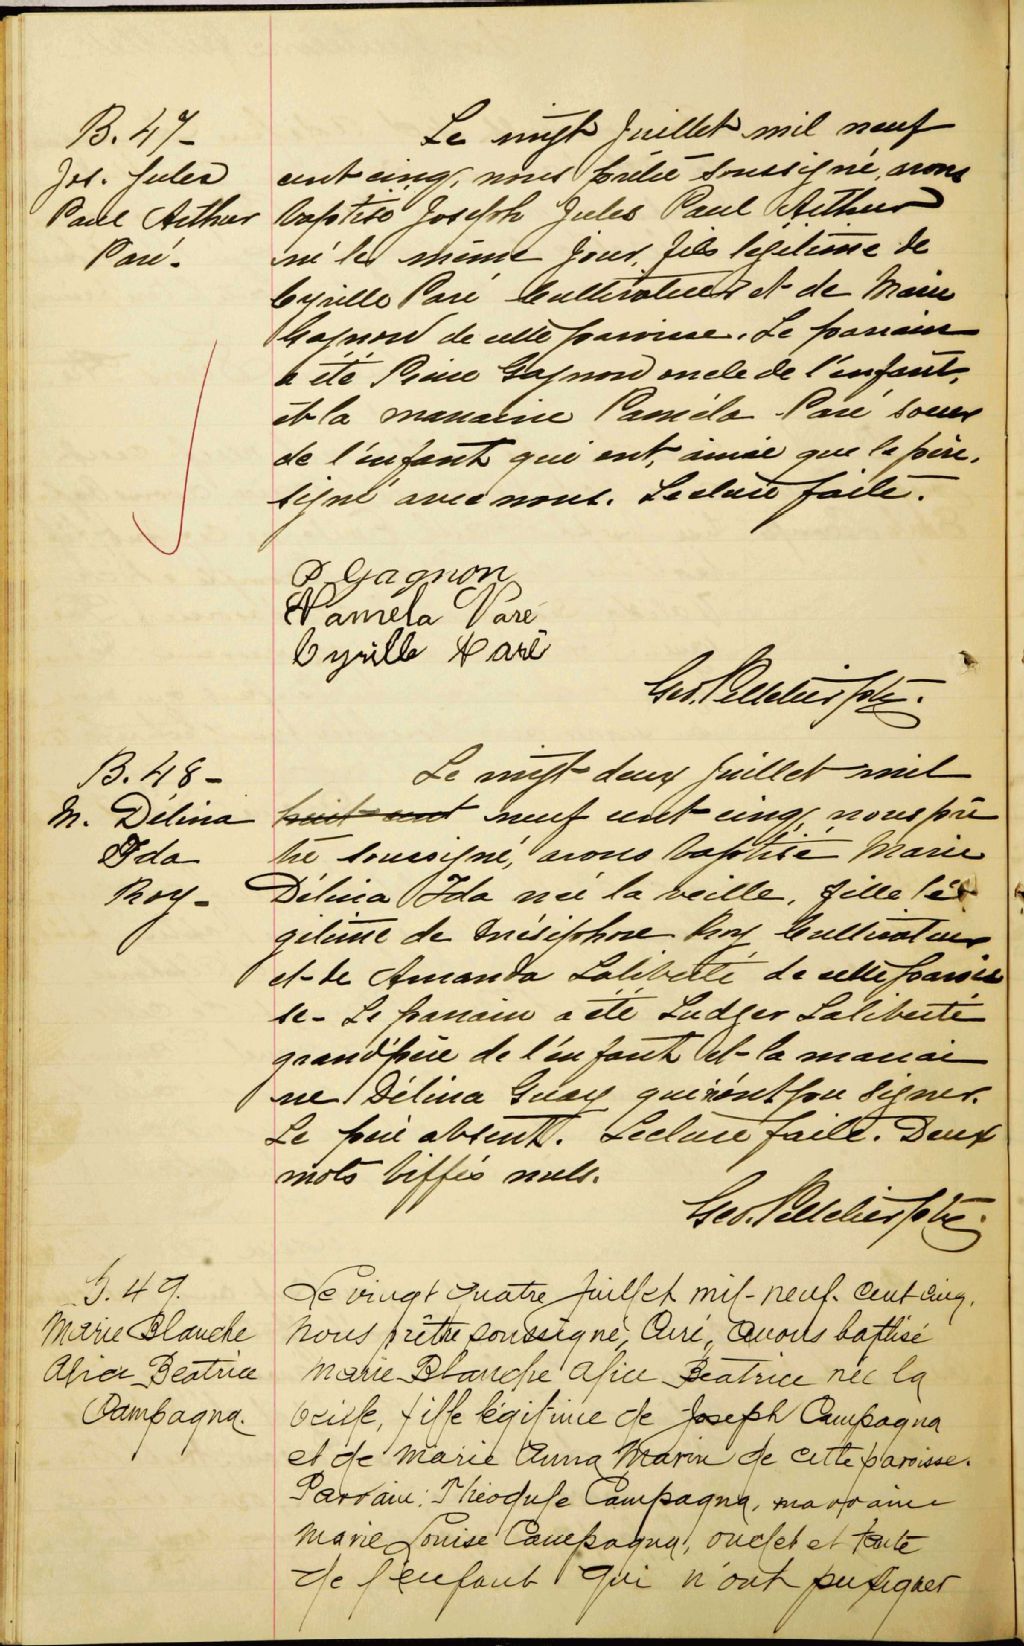 B. 47-
Jos. Jules
Paul Arthur
Paré.
Le vingt Juillet mil neuf
cent cinq, nous prêtre soussigné, avons
baptisé Joseph Jules Paul Arthur
né le même jour, fils légitime de
Cyrille Paré Cultivateur et de Marie
Gagnon de cette paroisse. Le parrain
a été Pierre Gagnon oncle de l'enfant,
et la marraine Paméla Paré soeur
de l'enfant qui ont, ainsi que le père,
signé avec nous. Lecture faite.
P Gagnon
Pamela Paré
Cyrille Paré
Geo. Pelletier ptre.
B. 48-
M. Délina
Ida
Roy-
Le vingt deux Juillet mil
huit cent neuf cent cinq, nous prê
tre soussigné, avons baptisé Marie
Délina Ida née la veille, fille lé
gitime de Onésiphore Roy Cultivateur
et de Amanda Laliberté de cette parois
se- Le parrain a été Ludger Laliberté
grand'père de l'enfant et la marrai
ne Délina Guay qui n'ont pu signer.
Le père absent. Lecture faite. Deux
mots biffés nuls.
Geo. Pelletier ptre.
B. 49.
Marie Blanche
Alice Beatrice
Campagna.
Le vingt quatre Juillet mil-neuf-cent cinq,
nous prêtre soussigné, Curé, avons baptisé
Marie Blanche Alice Beatrice née la
veille, fille légitime de Joseph Campagna
et de Marie Anna Marin de cette paroisse.
Parrain: Théodule Campagna, marraine
Marie Louise Campagna, oncle et tante
de l'enfant qui n'ont pu signer